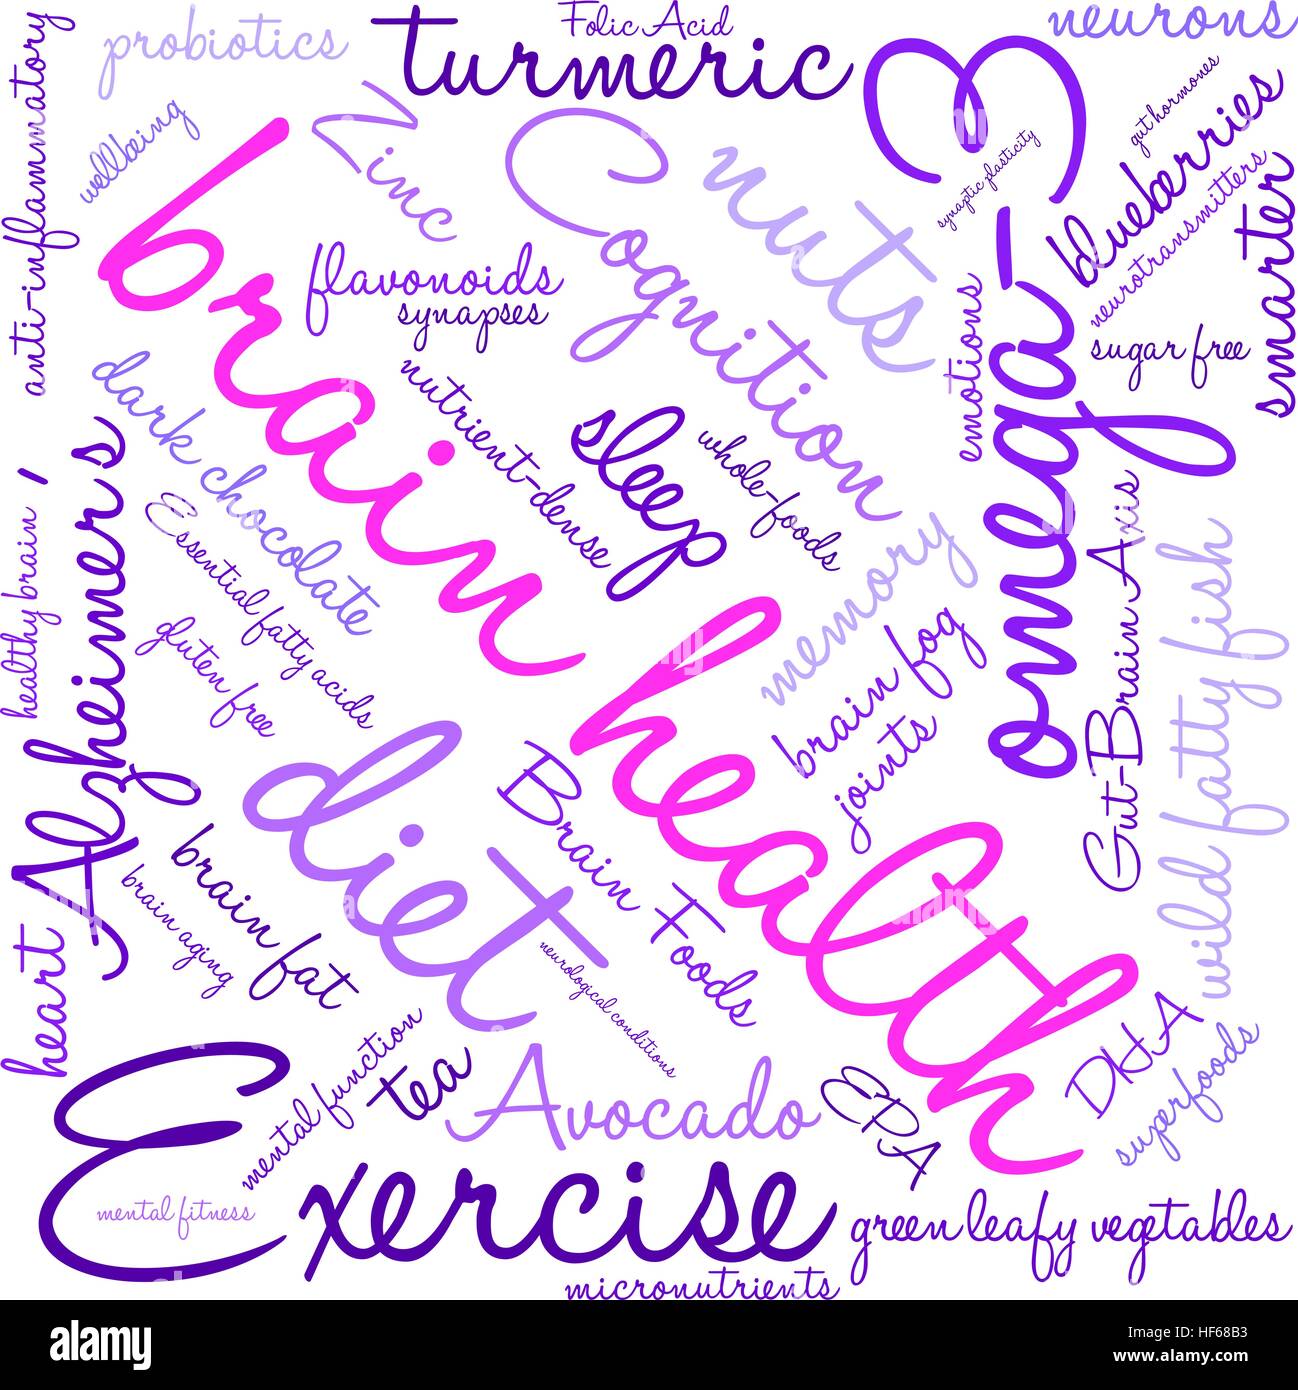 Folic Acid
neurons
probiotics
turmeric
anti-inflammatory
wellbeing
Zinc
Cognition
nuts
omega-3
synaptic plasticity
gut hormones
blueberries
neurotransmitters
smarter
sugar free
emotions
flavonoids
synapses
brain health
dark chocolate
nutrient-dense
sleep
whole-foods
memory
brain fog
joints
Gut-Brain Axis
wild fatty fish
healthy brain
Alzheimer's
Essential fatty acids
gluten free
diet
Brain Foods
brain fat
brain aging
heart
neurological conditions
mental function
tea
Avocado
EPA
DHA
superfoods
Exercise
mental fitness
green leafy vegetables
micronutrients
alamy
Image ID: HF68B3
www.alamy.com